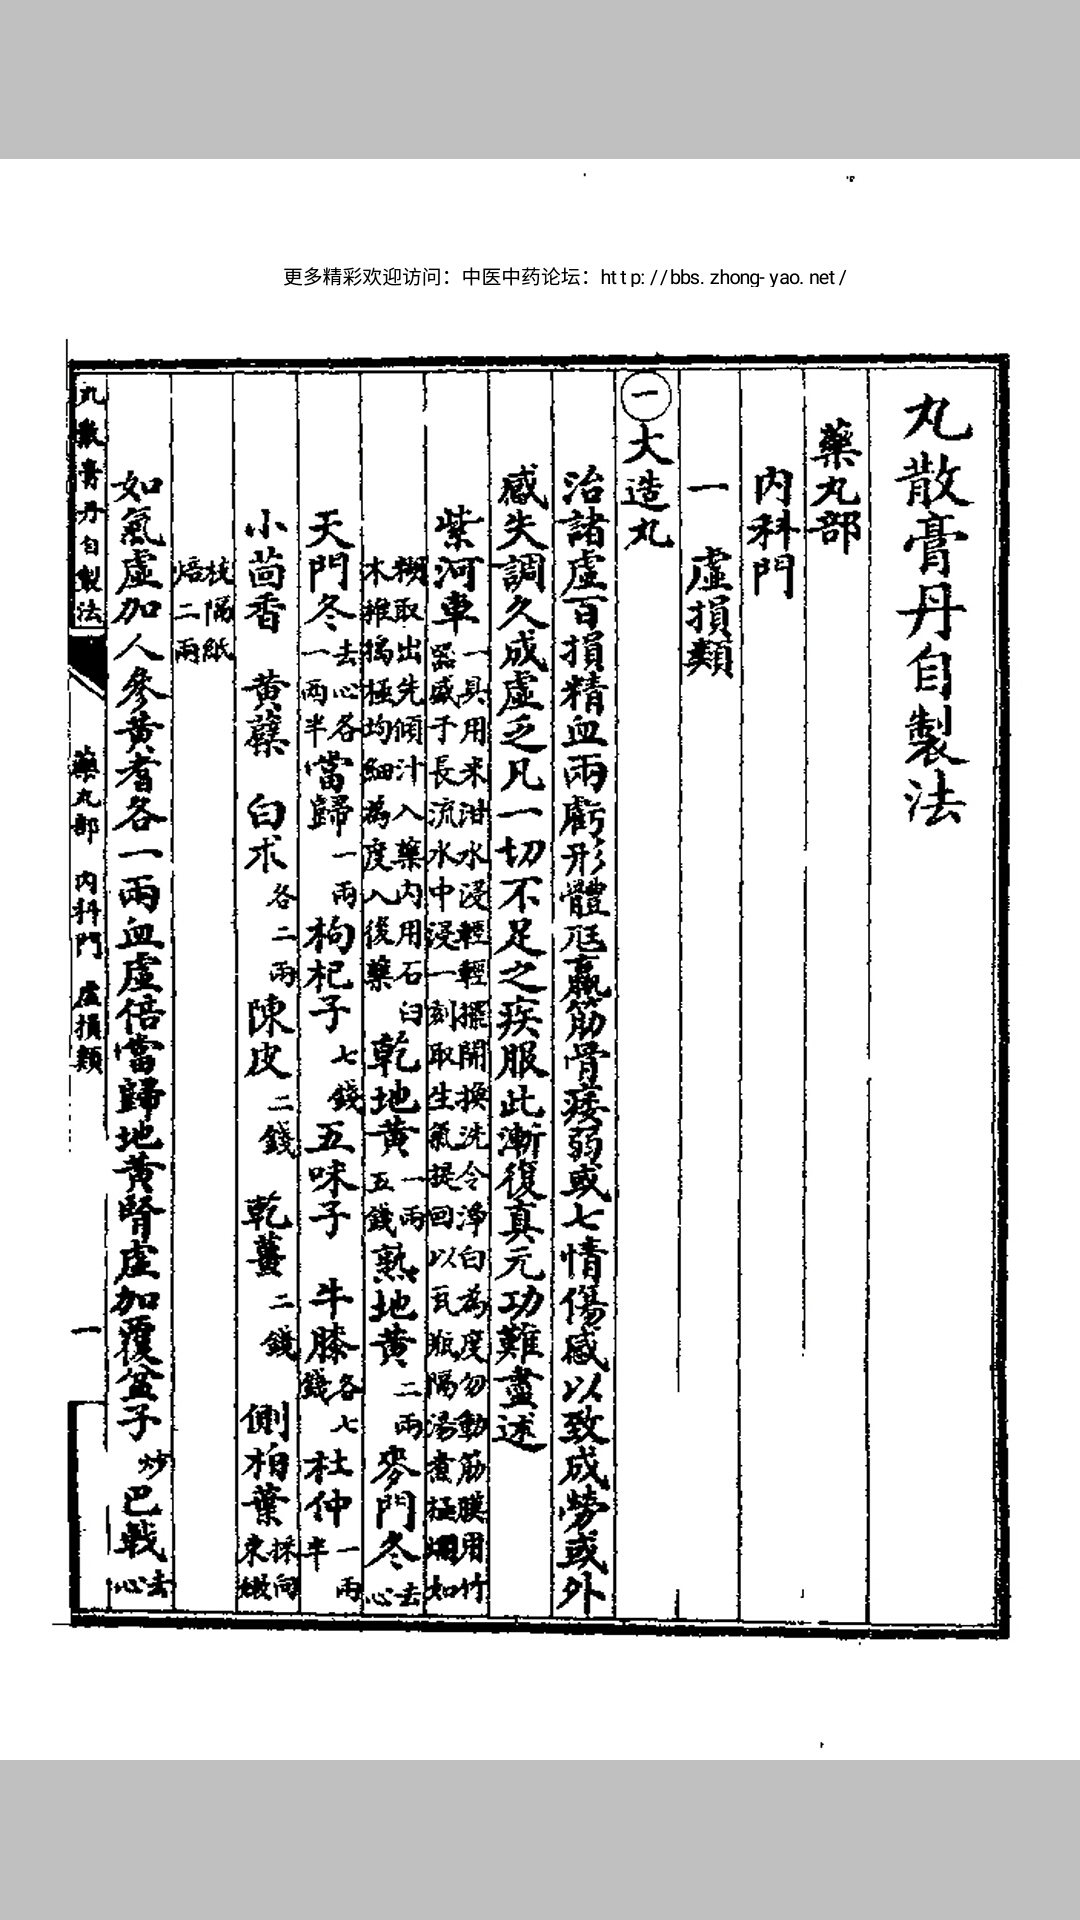 更多精彩欢迎访问：中医中药论坛：http://bbs.zhong-yao.net/
丸散膏丹自製法
藥丸部
內科門
一 虛損類
㊀大造丸
治諸虛百損精血兩虧形體尫羸筋骨痿弱或七情傷感以致成癆或外
感失調久成虛乏凡一切不足之疾服此漸復真元功難盡述
紫河車 一具用米泔水浸輕輕擺開換洗令淨白為度勿動筋膜用竹
器盛于長流水中浸一刻取生氣提回以瓦瓶隔湯煮極爛如
糊取出先傾汁入藥內用石臼
木椎搗極均細為度入後藥
乾地黃 一兩五錢 熟地黃 二兩 麥門冬 去心
天門冬 去心各一兩半 當歸 一兩 枸杞子 七錢 五味子 牛膝 各七錢 杜仲 一兩半
小茴香 黃蘗 白朮 各二兩 陳皮 二錢 乾薑 二錢 側柏葉 採向東嫩
枝隔紙
焙二兩
如氣虛加人參黃耆各一兩血虛倍當歸地黃腎虛加覆盆子 炒 巴戟 去心
丸散膏丹自製法
藥丸部 內科門 虛損類
一